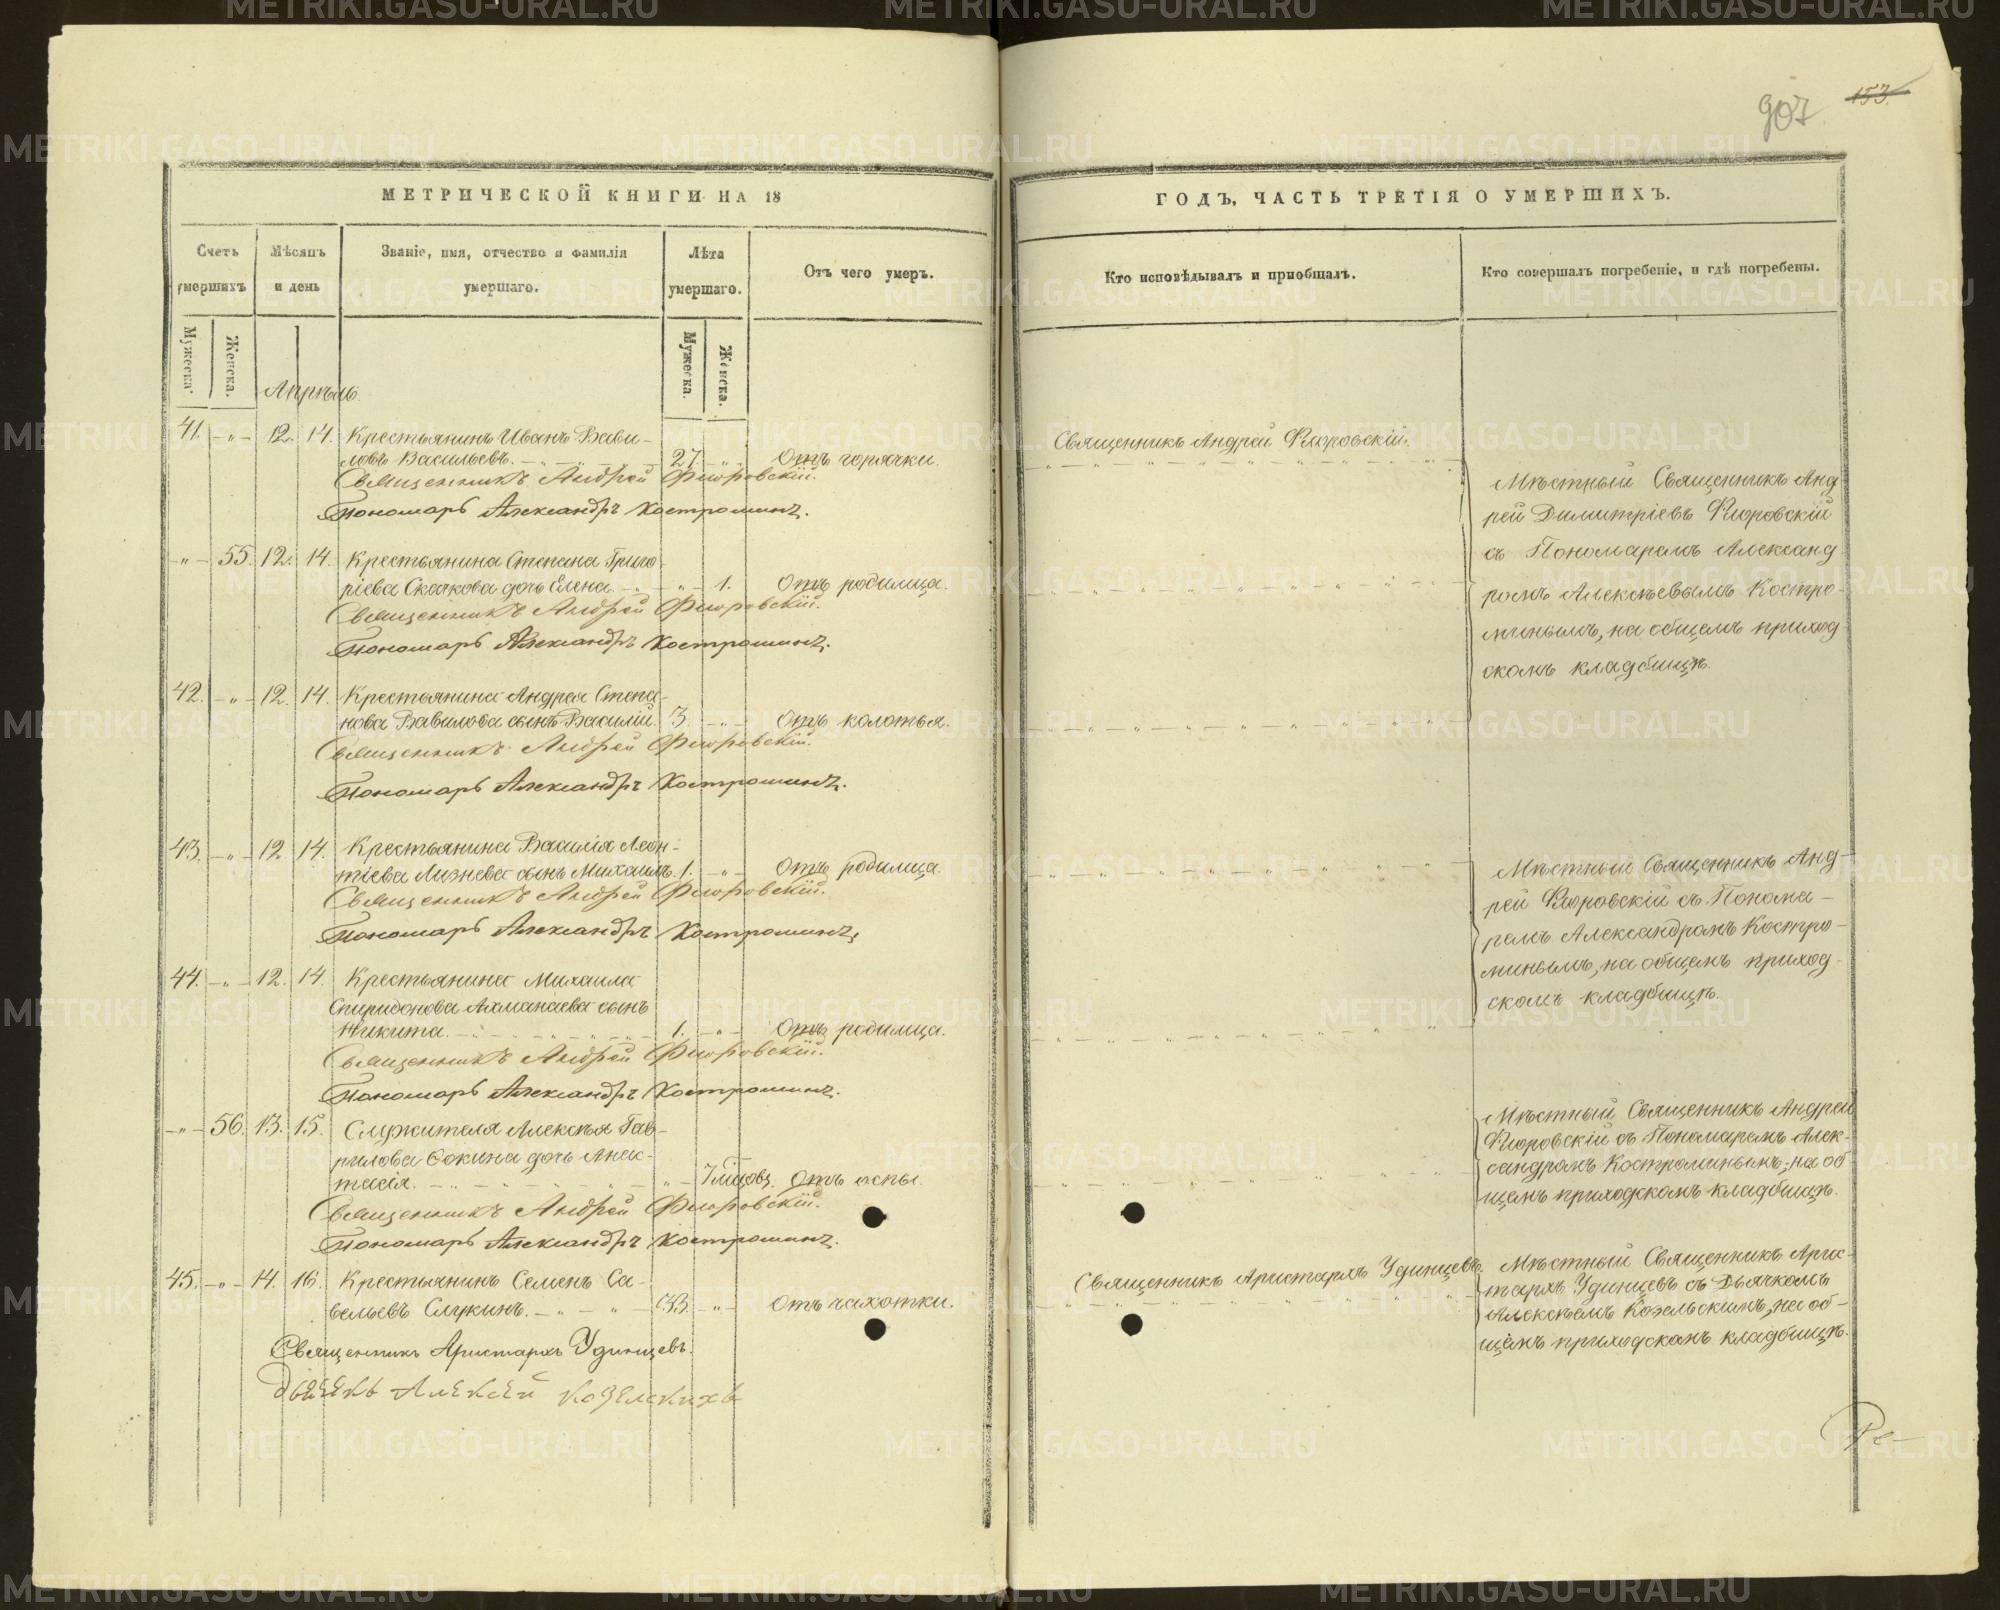 907 153.
МЕТРИЧЕСКОЙ КНИГИ НА 18
Счетъ умершихъ
Мѣсяцъ и день
Званіе, имя, отчество и фамилія умершаго.
Лѣта умершаго.
Отъ чего умеръ.
Мужеска.
Женска.
Мужеска.
Женска.
Апрѣль
41. - " - 12. 14. Крестьянинъ Иванъ Вави-
ловъ Васильевъ. 27. - " Отъ горячки.
Священникъ Андрей Флоровскій.
Пономарь Александръ Костроминъ.
" - 55. 12. 14. Крестьянина Степана Григо
ріева Скачкова дочь Елена. - " - 1. Отъ родимца.
Священникъ Андрей Флоровскій.
Пономарь Александръ Костроминъ.
42. - " - 12. 14. Крестьянина Андрея Степа-
нова Вавилова сынъ Василій 3. - " - Отъ колотья.
Священникъ Андрей Флоровскій.
Пономарь Александръ Костроминъ.
43. - " - 12. 14. Крестьянина Василія Леон-
тіева сынъ Михаилъ. 1. - " - Отъ родимца.
Священникъ Андрей Флоровскій.
Пономарь Александръ Костроминъ.
44. - " - 12. 14. Крестьянина Михаила
Спиридонова Ахманаева сынъ
Никита. 1. - " - Отъ родимца.
Священникъ Андрей Флоровскій.
Пономарь Александръ Костроминъ.
- " - 56. 13. 15. Служителя Алексѣя Гав-
рилова Ѳокина дочь Анас-
тасія. " - 7 мѣсяцовъ. Отъ оспы.
Священникъ Андрей Флоровскій.
Пономарь Александръ Костроминъ.
45. - " - 14. 16. Крестьянинъ Семенъ Са-
вельевъ Слукинъ. - " - " - 33. - " - Отъ чахотки.
Священникъ Аристархъ Удинцевъ.
Дьячекъ Алексѣй Козельскихъ
ГОДЪ, ЧАСТЬ ТРЕТІЯ О УМЕРШИХЪ.
Кто исповѣдывалъ и приобщалъ.
Кто совершалъ погребеніе, и гдѣ погребены.
Священникъ Андрей Флоровскій.
Мѣстный Священникъ Анд-
рей Димитріевъ Флоровскій
съ Пономаремъ Александ
ромъ Алексѣевымъ Костро-
минымъ, на общемъ приход-
скомъ кладбищѣ.
Мѣстный Священникъ Анд-
рей Флоровскій съ Понома-
ремъ Александромъ Костро-
минымъ, на общемъ приход-
скомъ кладбищѣ.
Мѣстный Священникъ Андрей
Флоровскій съ Пономаремъ Алек-
сандромъ Костроминымъ, на об
щемъ приходскомъ кладбищѣ.
Священникъ Аристархъ Удинцевъ.
Мѣстный Священникъ Арис-
тархъ Удинцевъ съ Дьячкомъ
Алексѣемъ Козельскимъ, на об-
щемъ приходскомъ кладбищѣ.
METRIKI.GASO-URAL.RU